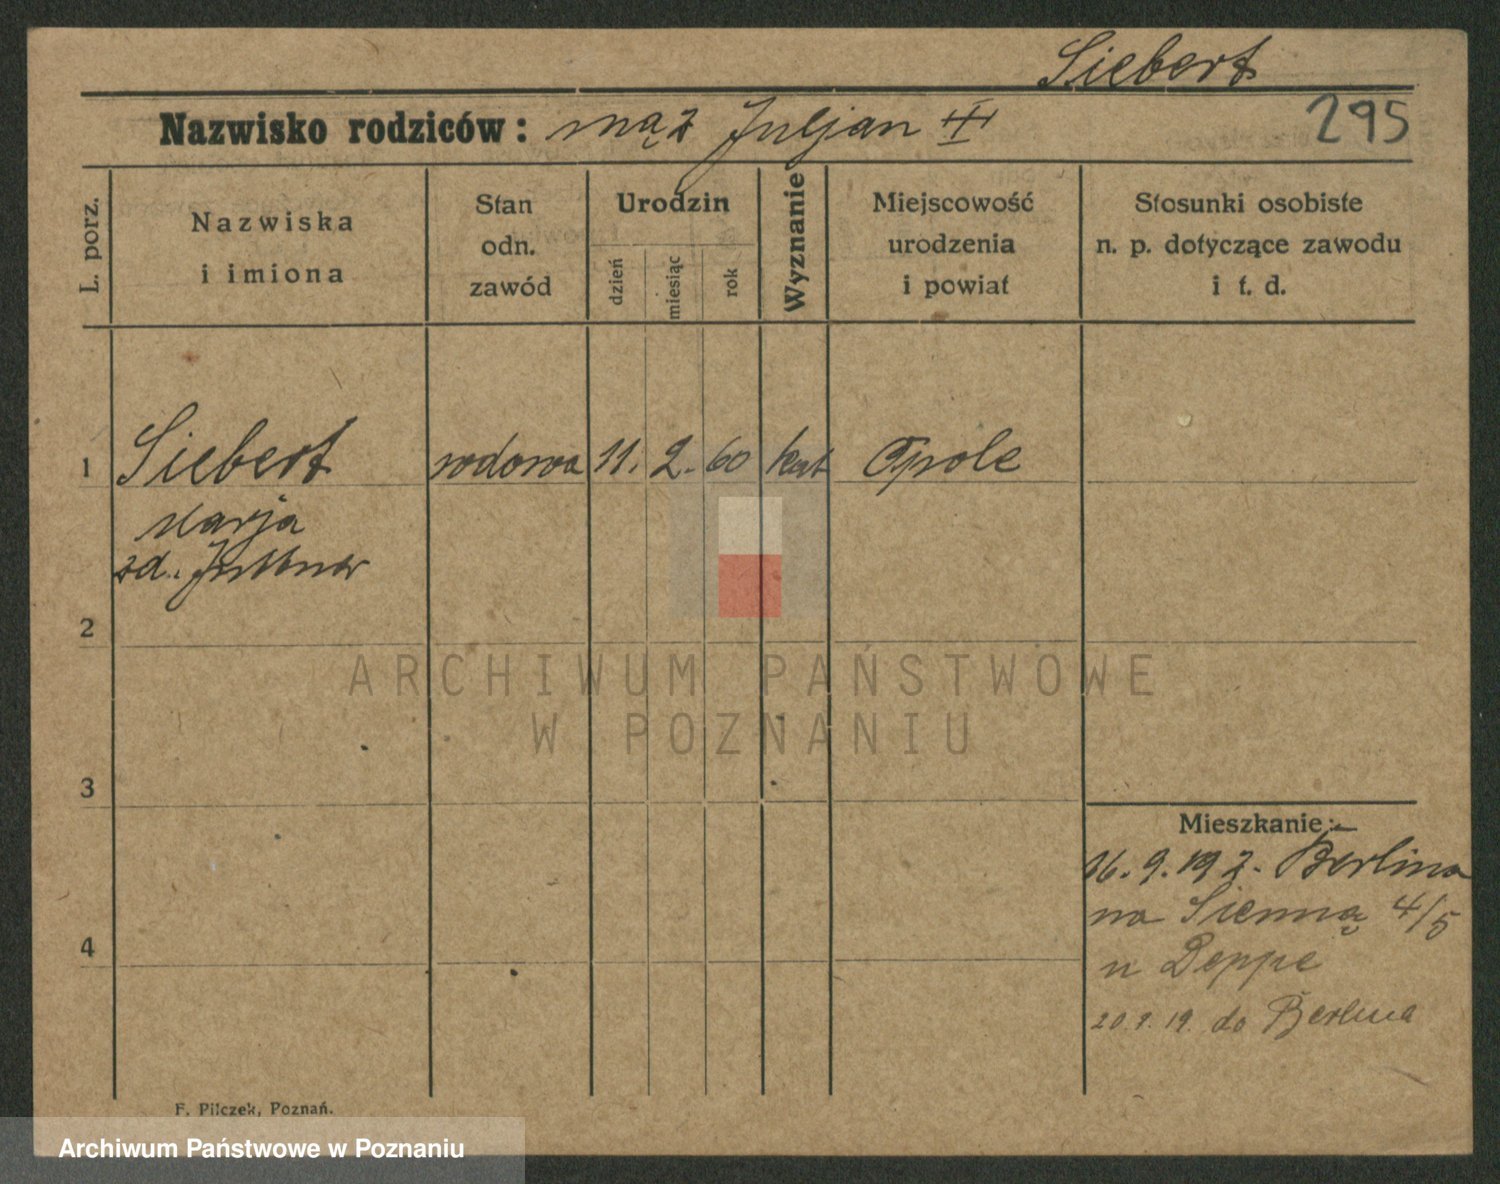 Siebert
Nazwisko rodziców: mąż Juljan III
295
L. porz.
Nazwiska
i imiona
Stan
odn.
zawód
Urodzin
dzień
miesiąc
rok
Wyznanie
Miejscowość
urodzenia
i powiat
Stosunki osobiste
n. p. dotyczące zawodu
i t. d.
1 Siebert wdowa 11. 2. 60 kat Opole
Marja
zd. Juttner
2
3
4
ARCHIWUM PAŃSTWOWE
W POZNANIU
Mieszkanie:
16.9.19 z. Berlina
na Sienną 4/5
u Deppe
20.9.19. do Berlina
F. Pilczek, Poznań.
Archiwum Państwowe w Poznaniu